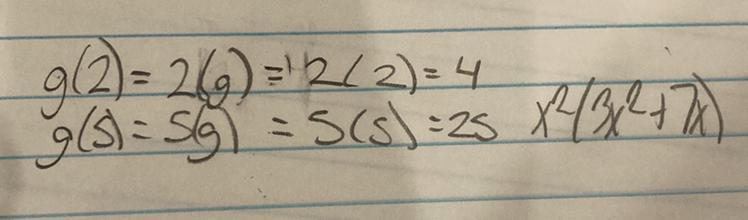 g(2) = 2(g) = 2(2) = 4
g(5) = 5(g) = 5(5) = 25 x²(3x²+7x)